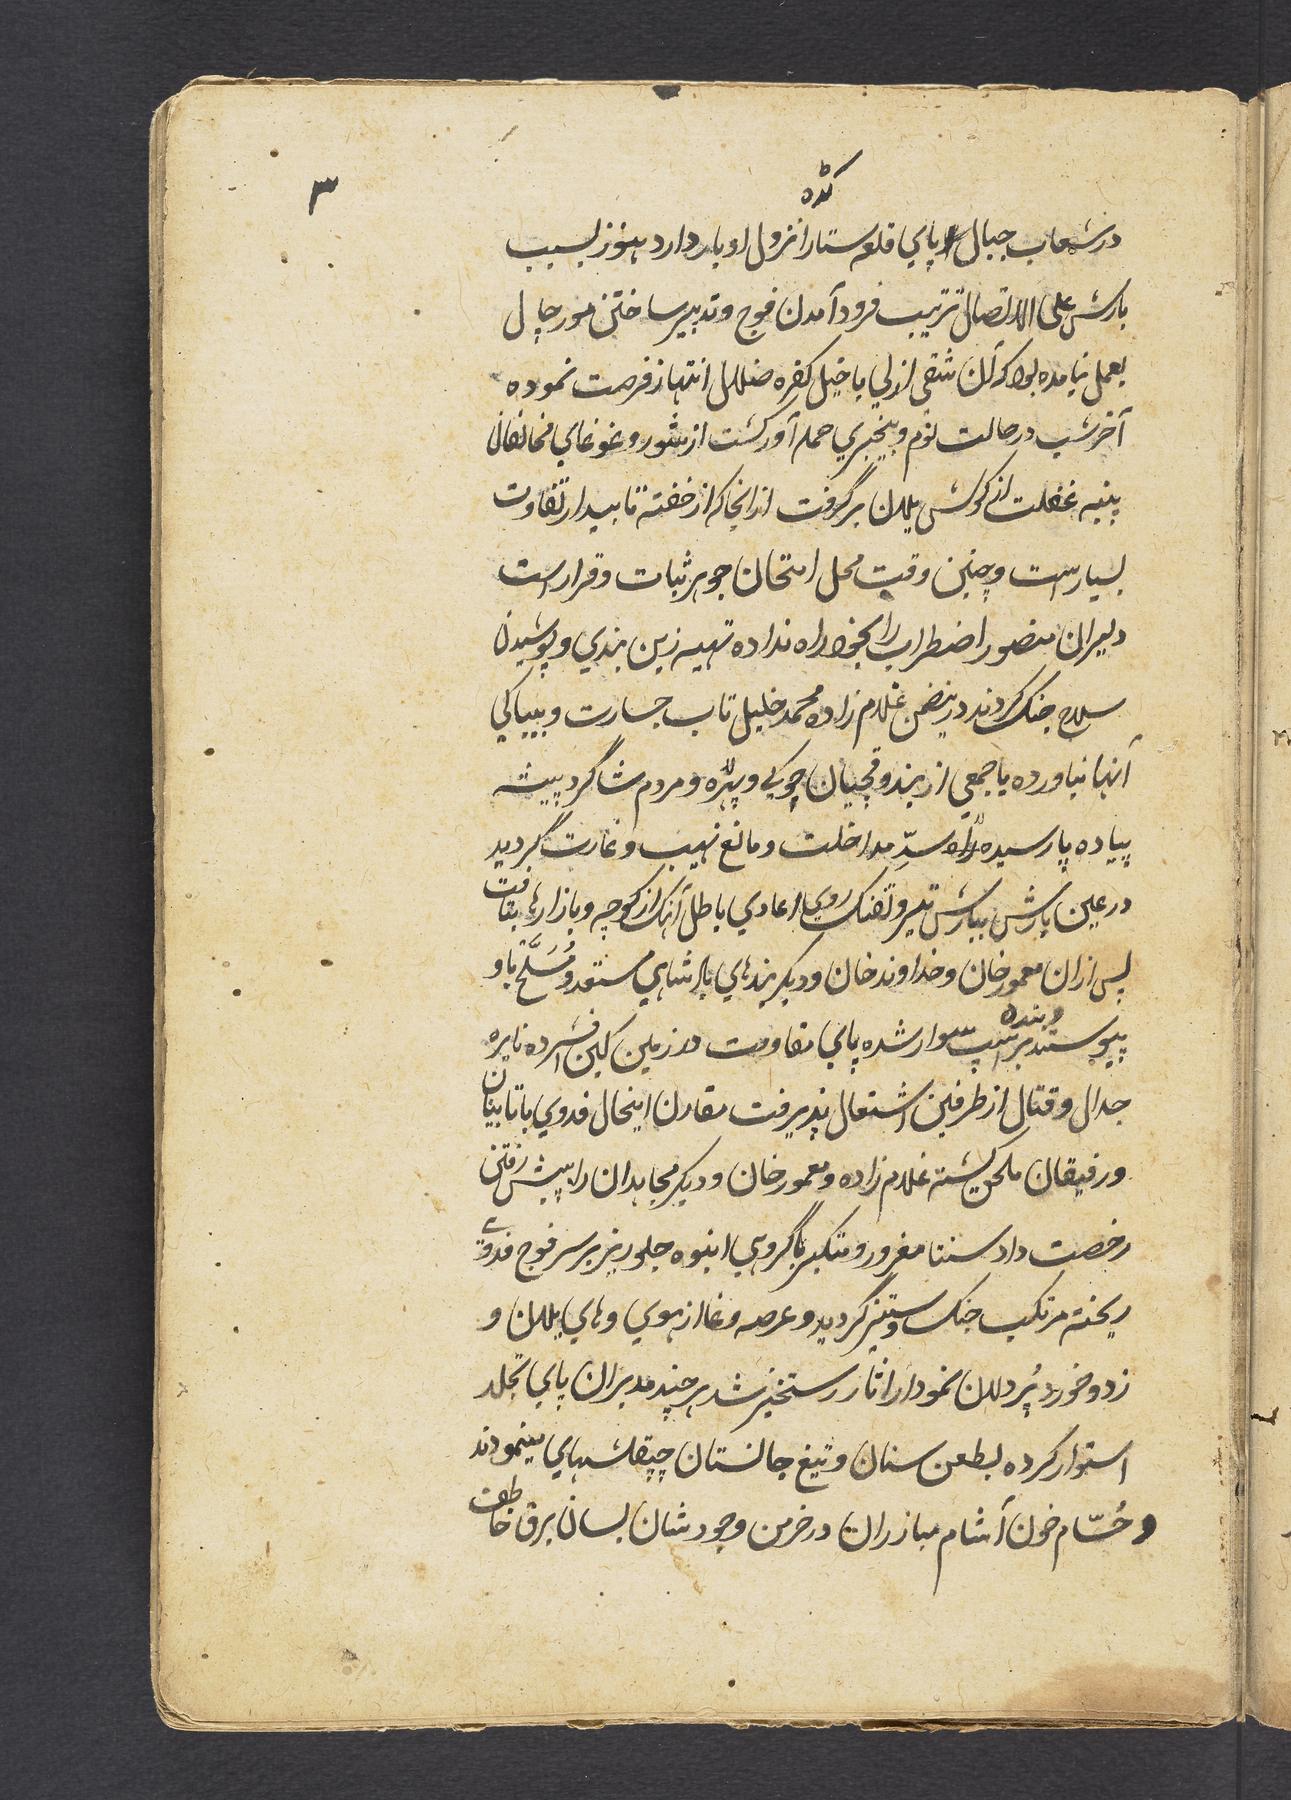 ۳
کڈہ
در شعاب جبال پاي قلعه ستارا نزول ادبار دارد هنوز بسبب
بارش علی الاتصال ترتیب فرود آمدن فوج و تدبیر ساختن مورچال
بعمل نیامده بود که آن شقی ازلي با خیل کفره ضلال انتهاز فرصت نموده
آخر شب در حالت نوم و بیخبري حمله آور گشت از شور و غوغاي مخالفان
پنبه غفلت از گوش یلان برگرفت ازانجا که از خفته تا بیدار تفاوت
بسیار است و چنین وقت محل امتحان جوهر ثبات و قرار است
دلیران منصور اضطراب را بخود راه نداده تهیه زین بندي و پوشیدن
سلاح جنگ کردند درینضمن غلام زاده محمد خلیل تاب جسارت و بیباکي
آنها نیاورده با جمعي از بندوقچیان چوکي و پهره و مردم شاگرد پیشه
پیاده پا رسیده سدِّ مداخلت و مانع نهب و غارت گردید
در عین بارش ببارش تیر و تفنگ روي اعادي باطل آهنگ از کوچه و بازارها بتافت
پس ازان معمور خان و خداوند خان و دیگر بندهاي پادشاهي مستعد و مُسَلَّح باو
پیوستند و بنده بر اسپ سوار شده پاي مقاومت در زمین کین افسرده نایره
جدال و قتال از طرفین اشتعال پذیرفت مقارن اینحال فدوي با تابینان
و رفیقان ملحق گشته غلام زاده و معمور خان و دیگر مجاهدان را پیش رفتن
رخصت داد سنتا مغرور و متکبر با گروهي انبوه جلوریز بر سر فوج فدوي
ریخته مرتکب جنگ و ستیز گردید و عرصه وغا از هوي و هاي یلان و
زد و خورد پُردلان نمودار اثار رستخیز شد هر چند مدبران پاي تجلد
استوار کرده بطعن سنان و تیغ جانستان چپقلشهاي مینمودند
و حُسّام خون آشام مبازران در خرمن وجودشان بسان برق خاطف